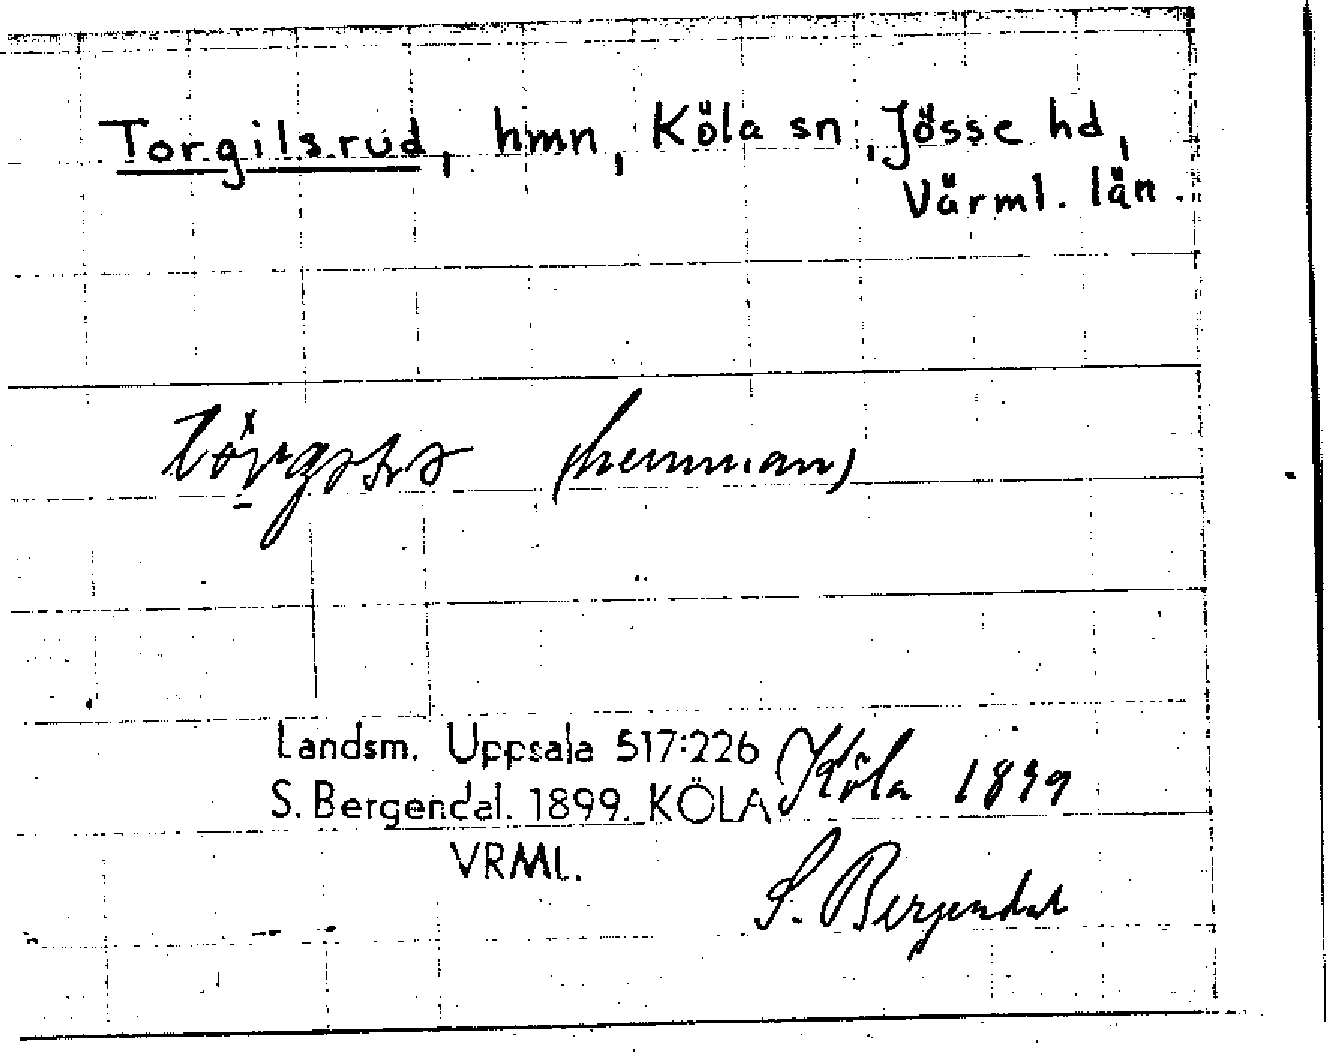 Torgilsrud, hmn, Köla sn, Jösse hd,
Värml. län.
(hemman)
Landsm. Uppsala 517:226
S. Bergendal. 1899. KÖLA
VRML.
Köla 1899
S. Bergendal